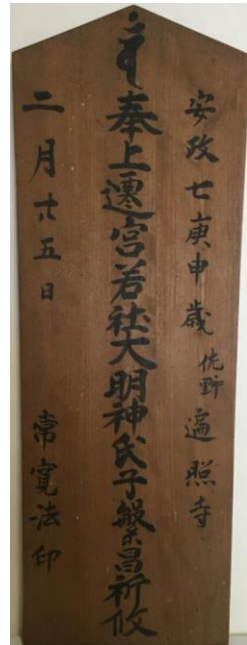 安政七庚申歳 佐野 遍照寺
奉上遷宮若社大明神氏子繁昌祈攸
二月廿五日 常寛法印